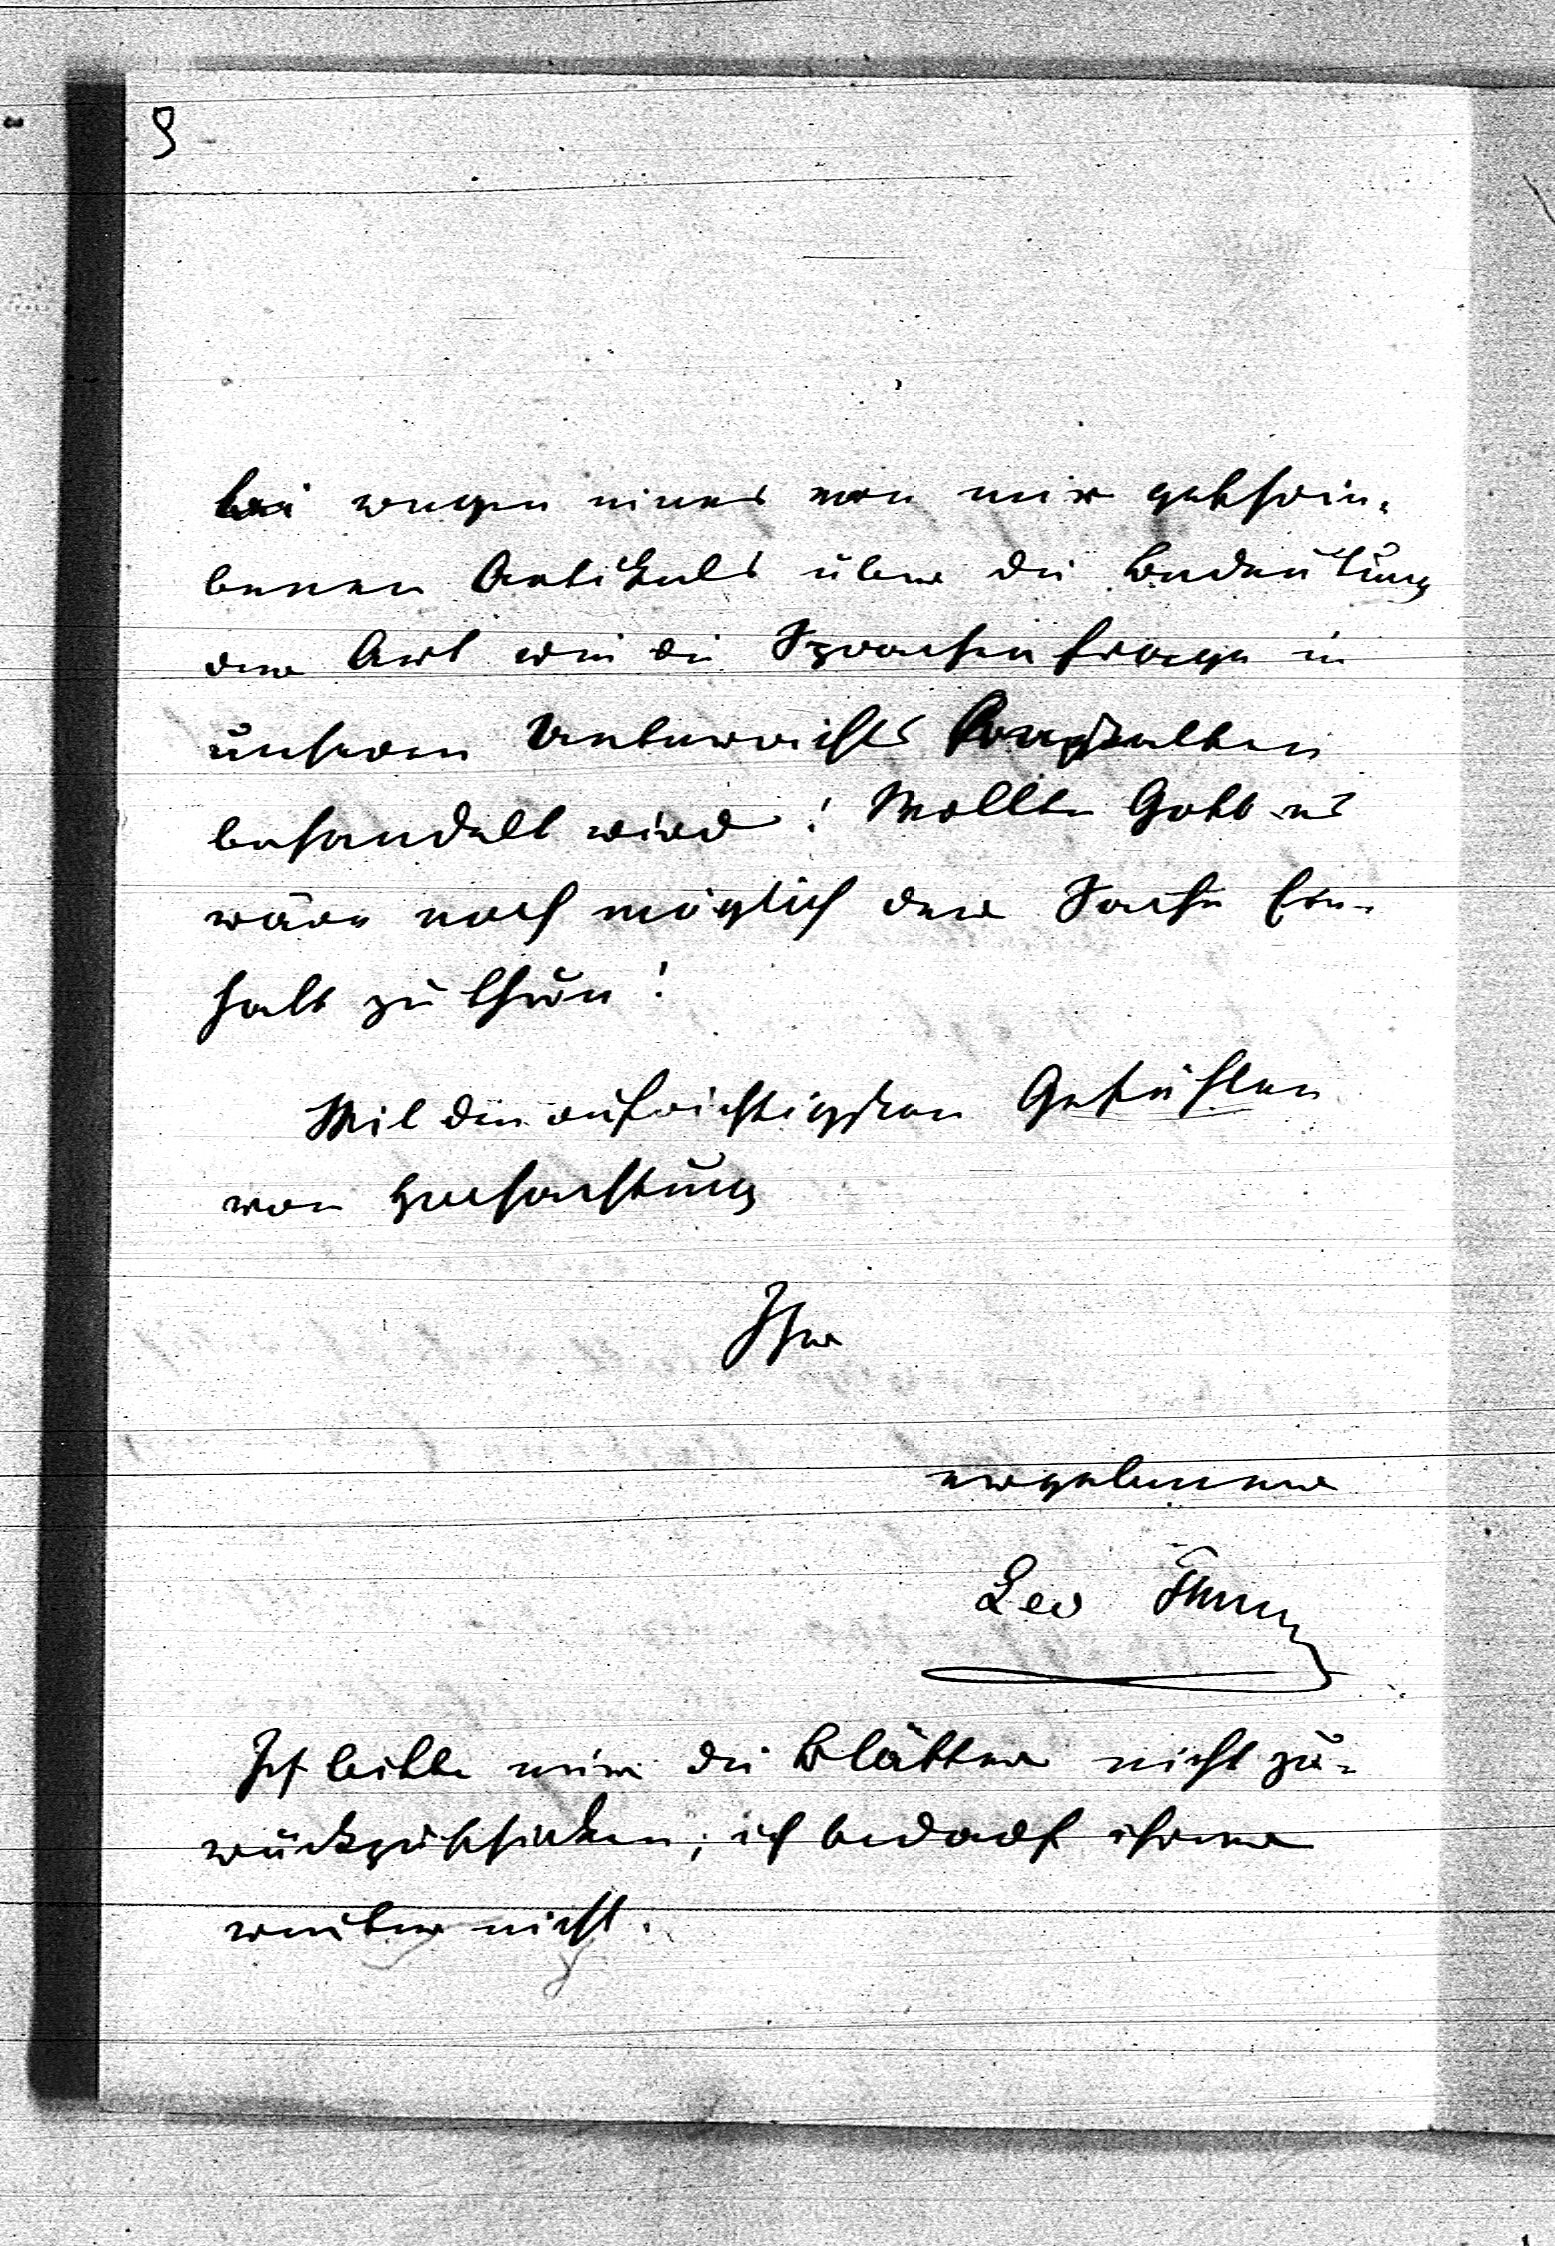 9
bei wegen eines von mir geschrie-
benen Artikels über die Bedeutung
der Art wie die Sprachenfrage in
unseren Unterrichts Anstalten
behandelt wird! Wollte Gott es
wäre noch möglich der Sache Ein-
halt zu thun!
Mit den aufrichtigsten Gefühlen
von Hochachtung
Ihr
ergebener
Leo Thun
Ich bitte mir die Blätter nicht zu-
rückzuschicken; ich bedarf ihrer
weiter nicht.